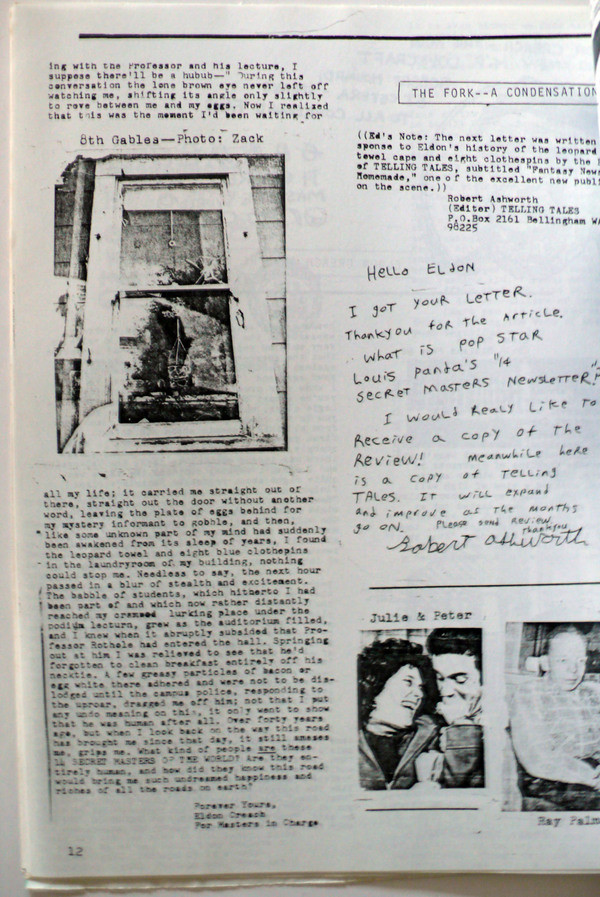 ing with the Professor and his lecture, I
suppose there'll be a hubub—" During this
conversation the lone brown eye never left off
watching me, shifting its angle only slightly
to rove between me and my eggs. Now I realized
that this was the moment I'd been waiting for
8th Gables—Photo: Zack
all my life; it carried me straight out of
there, straight out the door without another
word, leaving the plate of eggs behind for
my mystery informant to gobble, and then,
like some unknown part of my mind had suddenly
been awakened from its sleep of years, I found
the leopard towel and eight blue clothespins
in the laundryroom of my building, nothing
could stop me. Needless to say, the next hour
passed in a blur of stealth and excitement.
The babble of students, which hitherto I had
been part of and which now rather distantly
reached my cramped lurking place under the
podium lecturn, grew as the auditorium filled,
and I knew when it abruptly subsided that Pro-
fessor Rothole had entered the hall. Springing
out at him I was relieved to see that he'd
forgotten to clean breakfast entirely off his
necktie. A few greasy particles of bacon or
egg white there adhered and were not to be dis-
lodged until the campus police, responding to
the uproar, dragged me off him; not that I put
any undo meaning on this, it only went to show
that he was human after all. Over forty years
ago, but when I look back on the way this road
has brought me since that day, it still amazes
me, grips me. What kind of people are these
14 SECRET MASTERS OF THE WORLD? Are they en-
tirely human, and how did they know this road
would bring me such undreamed happiness and
riches of all the roads on earth?
Forever Yours,
Eldon Creech
For Masters in Charge
12
THE FORK--A CONDENSATION
((Ed's Note: The next letter was written
sponse to Eldon's history of the leopard
towel cape and eight clothespins by the
of TELLING TALES, subtitled "Fantasy News
Homemade," one of the excellent new publi
on the scene.))
Robert Ashworth
(Editor) TELLING TALES
P.O.Box 2161 Bellingham WA
98225
Hello Eldon
I got your letter.
Thankyou for the Article.
What is pop star
Louis panda's "14
secret masters Newsletter?"
I would Realy Like to
Receive a copy of the
Review! meanwhile here
is a copy of Telling
TALes. It will expand
and improve as the months
go on. Please send Review
thankyou
Robert Ashworth
Julie & Peter
Ray Palm